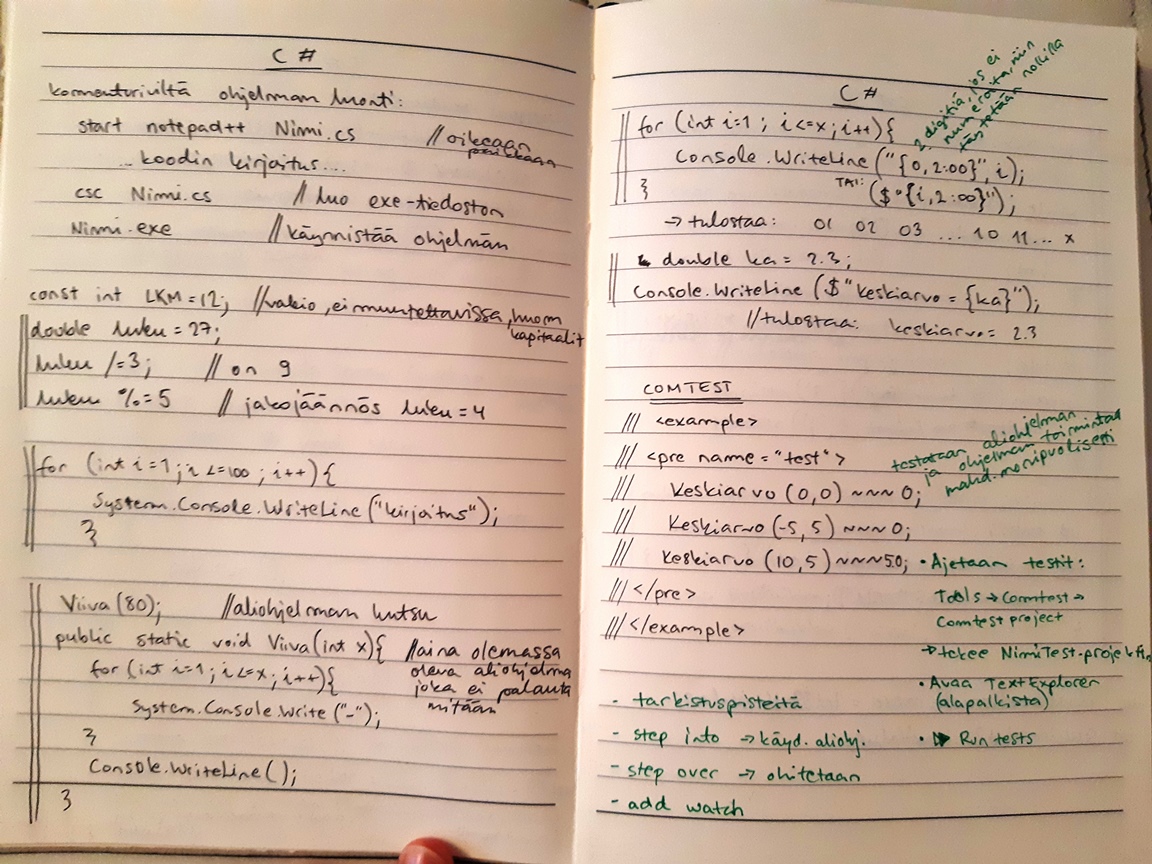 C #
komentoriviltä ohjelman luonti:
start notepad++ Nimi.cs //oikeaan
paikkaan
...koodin kirjoitus...
csc Nimi.cs // luo exe-tiedoston
Nimi.exe //käynnistää ohjelman
const int LKM = 12; //vakio, ei muutettavissa, huom
kapitaalit
double luku = 27;
luku /= 3; // on 9
luku %= 5 // jakojäännös luku = 4
for (int i = 1; i <= 100; i++){
System.Console.WriteLine("kirjoitus");
}
Viiva (80); //aliohjelman kutsu
public static void Viiva(int x){ //aina olemassa
oleva aliohjelma
for (int i=1; i <= x; i++){ joka ei palauta
mitään
System.Console.Write ("-");
}
Console.WriteLine();
}
C #
2 digitiä, jos ei
numeroita, niin
täytetään nollilla
for (int i=1; i <=x; i++){
Console.WriteLine("{0,2:00}", i);
} TAI: ($"{i,2:00}");
→ tulostaa: 01 02 03 ... 10 11... x
double ka = 2.3;
Console.WriteLine ($"keskiarvo = {ka}");
//tulostaa: keskiarvo = 2.3
COMTEST
/// <example>
/// <pre name = "test">
testataan aliohjelman
ja ohjelman toimintaa
mahd. monipuolisesti
/// Keskiarvo (0,0) ~~~ 0;
/// Keskiarvo (-5, 5) ~~~ 0;
/// Keskiarvo (10, 5) ~~~ 5.0;
/// </pre>
/// </example>
• Ajetaan testit:
Tools → Comtest →
Comtest project
→ tekee NimiTest-projektin
• Avaa Text Explorer
(alapalkista)
• ▶ Run tests
- tarkistuspisteitä
- step into → käyd. aliohj.
- step over → ohitetaan
- add watch